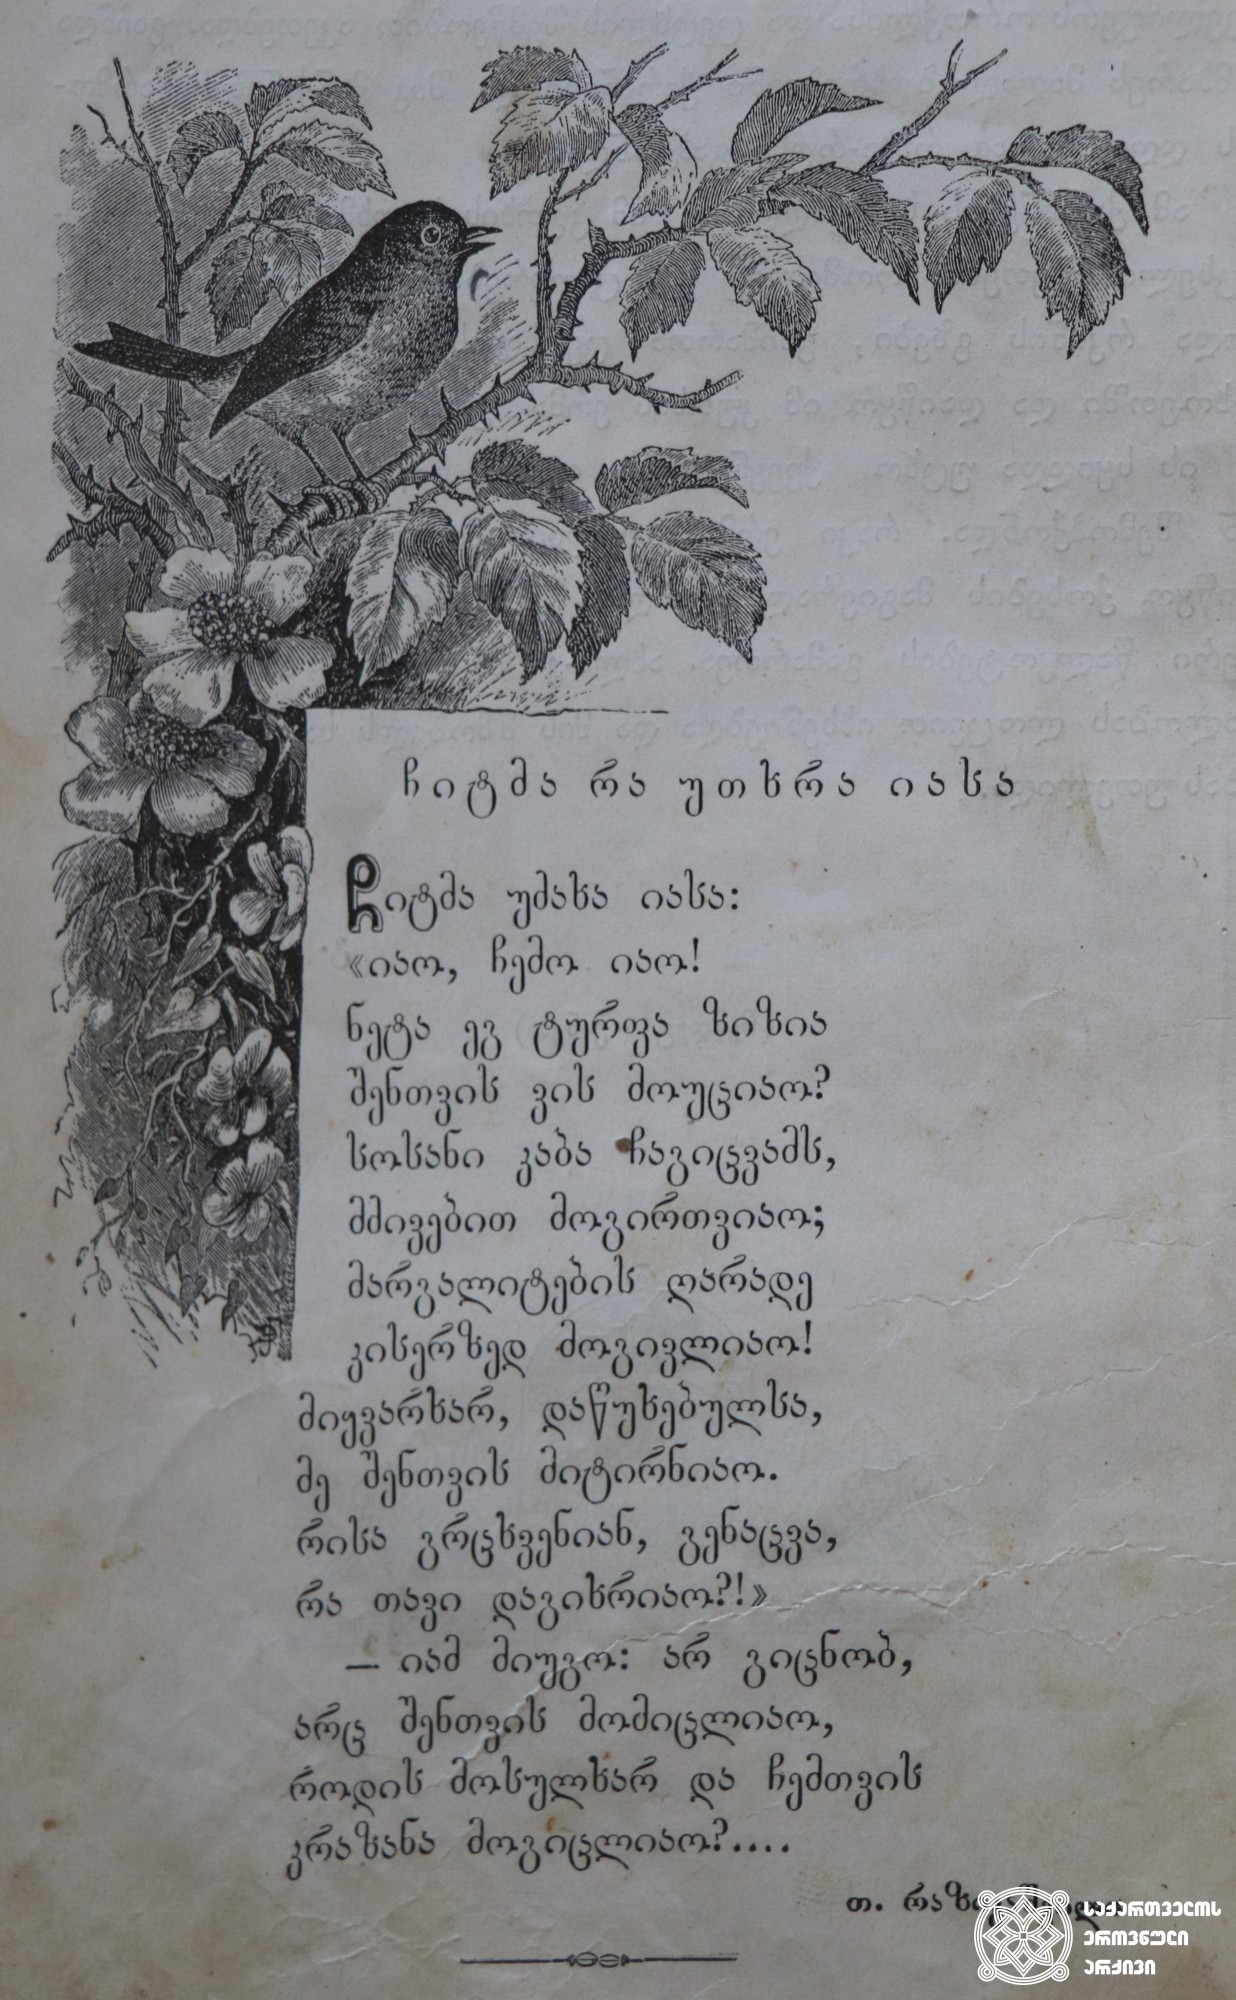 ჩიტმა რა უთხრა იასა
ჩიტმა უმახა იასა:
«იაო, ჩემო იაო!
ნეტა ეგ ტურფა ზიზია
შენთვის ვის მოუციაო?
სოსანი კაბა ჩაგიცვამს,
მძივებით მოგირთვიაო;
მარგალიტების ღარადე
კისერზედ მოგივლიაო!
მიყვარხარ, დაწუხებულსა,
მე შენთვის მიტირნიაო.
რისა გრცხვენიან, გენაცვა,
რა თავი დაგიხრიაო?!»
— იამ მიუგო: არ გიცნობ,
არც შენთვის მომიცლიაო,
როდის მოსულხარ და ჩემთვის
კრაზანა მოგიცლიაო?....
თ. რაზიკაშვილი
საქართველოს
ეროვნული
არქივი